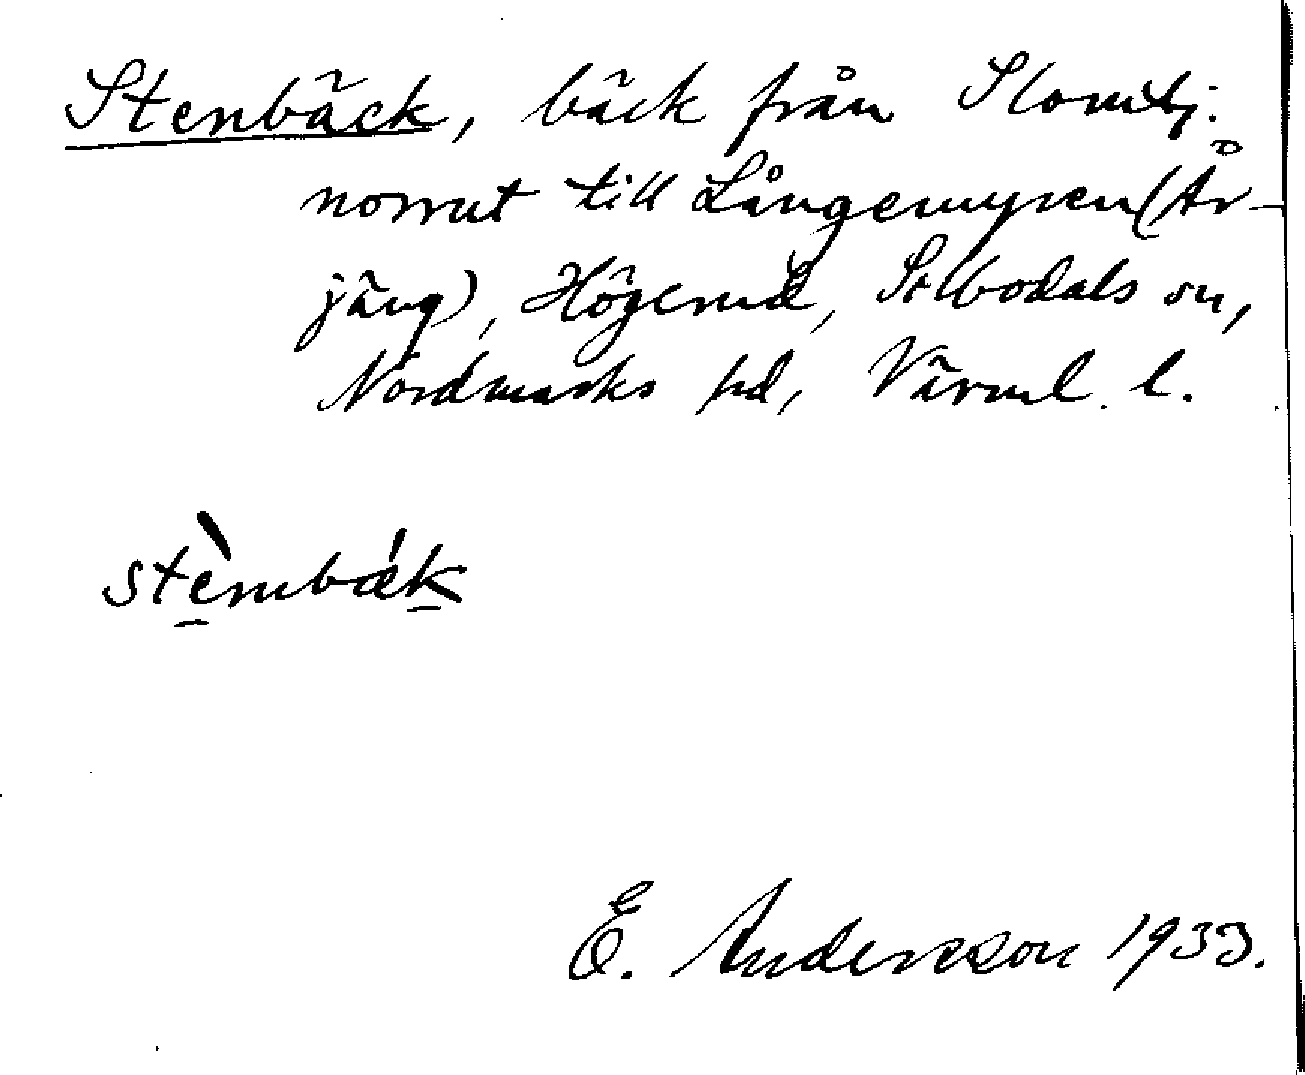 Stenbäck, bäck från
norrut till Långemyren (År-
jäng), Högerud, Silbodals sn,
Nordmarks hd, Värml. l.
stèmbǽk
E. Andersson 1933.